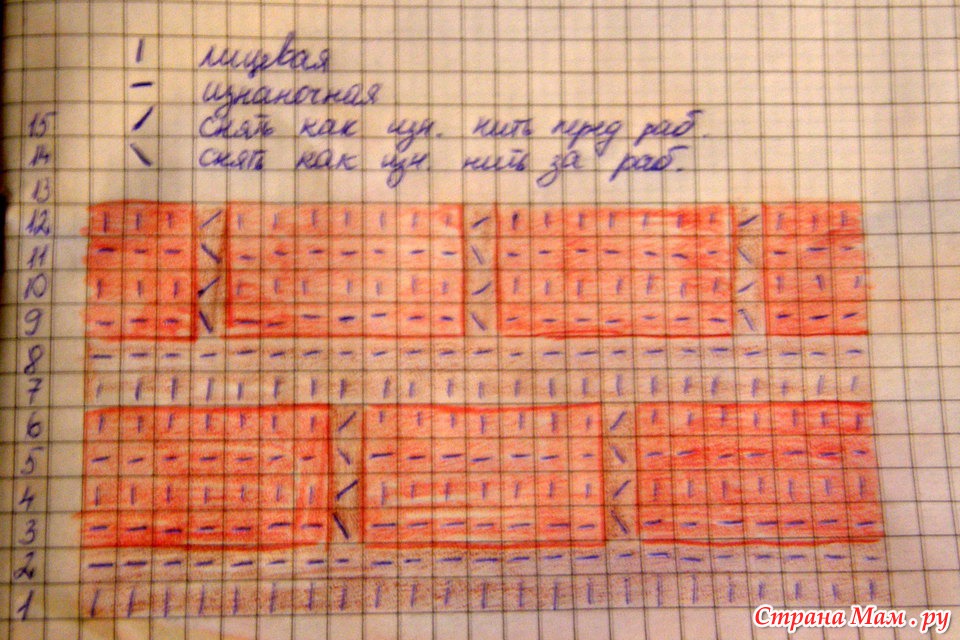 | лицевая
— изнаночная
15 / снять как изн. нить перед раб.
14 \ снять как изн. нить за раб.
13
12
11
10
9
8
7
6
5
4
3
2
1
Страна Мам.ру